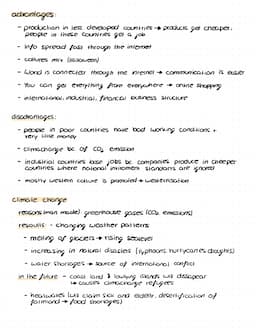 advantages:
- production in less developed countries → products get cheaper, people in these countries get a job
- info spread fast through the internet
- cultures mix (Halloween)
- World is connected through the internet → communication is easier
- You can get everything from everywhere → online shopping
- international, industrial, financial business structure
disadvantages:
- people in poor countries have bad working conditions + very little money
- climachange bc of CO₂ emission
- industrial countries lose jobs bc companies produce in cheaper countries where national environment standarts are ignored
- mostly western culture is promoted → westernisation
Climate change
reasons (man made): greenhouse gases (CO₂ emissions)
results: - changing weather patterns
- melting of glaciers → rising sealevel
- increasing in natural disasters (typhoons, hurrycanes, droughts)
- water shortages → source of international conflict
in the future: - coast land & lowlying islands will disappear
↳ causes climachange refugees
- heatwaves (will claim sick and elderly, desertification of farmland → food shortages)